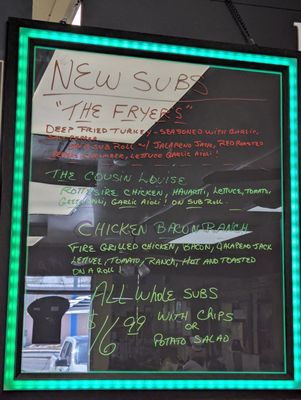 NEW SUBS
"THE FRYER'S"
DEEP FRIED TURKEY - SEASONED WITH GARLIC,
ON A SUB ROLL W/ JALAPENO JACK, RED ROASTED
CUCUMBER, LETTUCE GARLIC AIOLI!
THE COUSIN LOUISE
ROTISSIRE CHICKEN, HAVARTI, LETTUCE, TOMATO,
GARLIC AIOLI! ON SUB ROLL.
CHICKEN BACON RANCH
FIRE GRILLED CHICKEN, BACON, JALAPENO JACK
LETTUCE, TOMATO, RANCH, HOT AND TOASTED
ON A ROLL!
ALL WHOLE SUBS
$16.99 WITH CHIPS
OR
POTATO SALAD